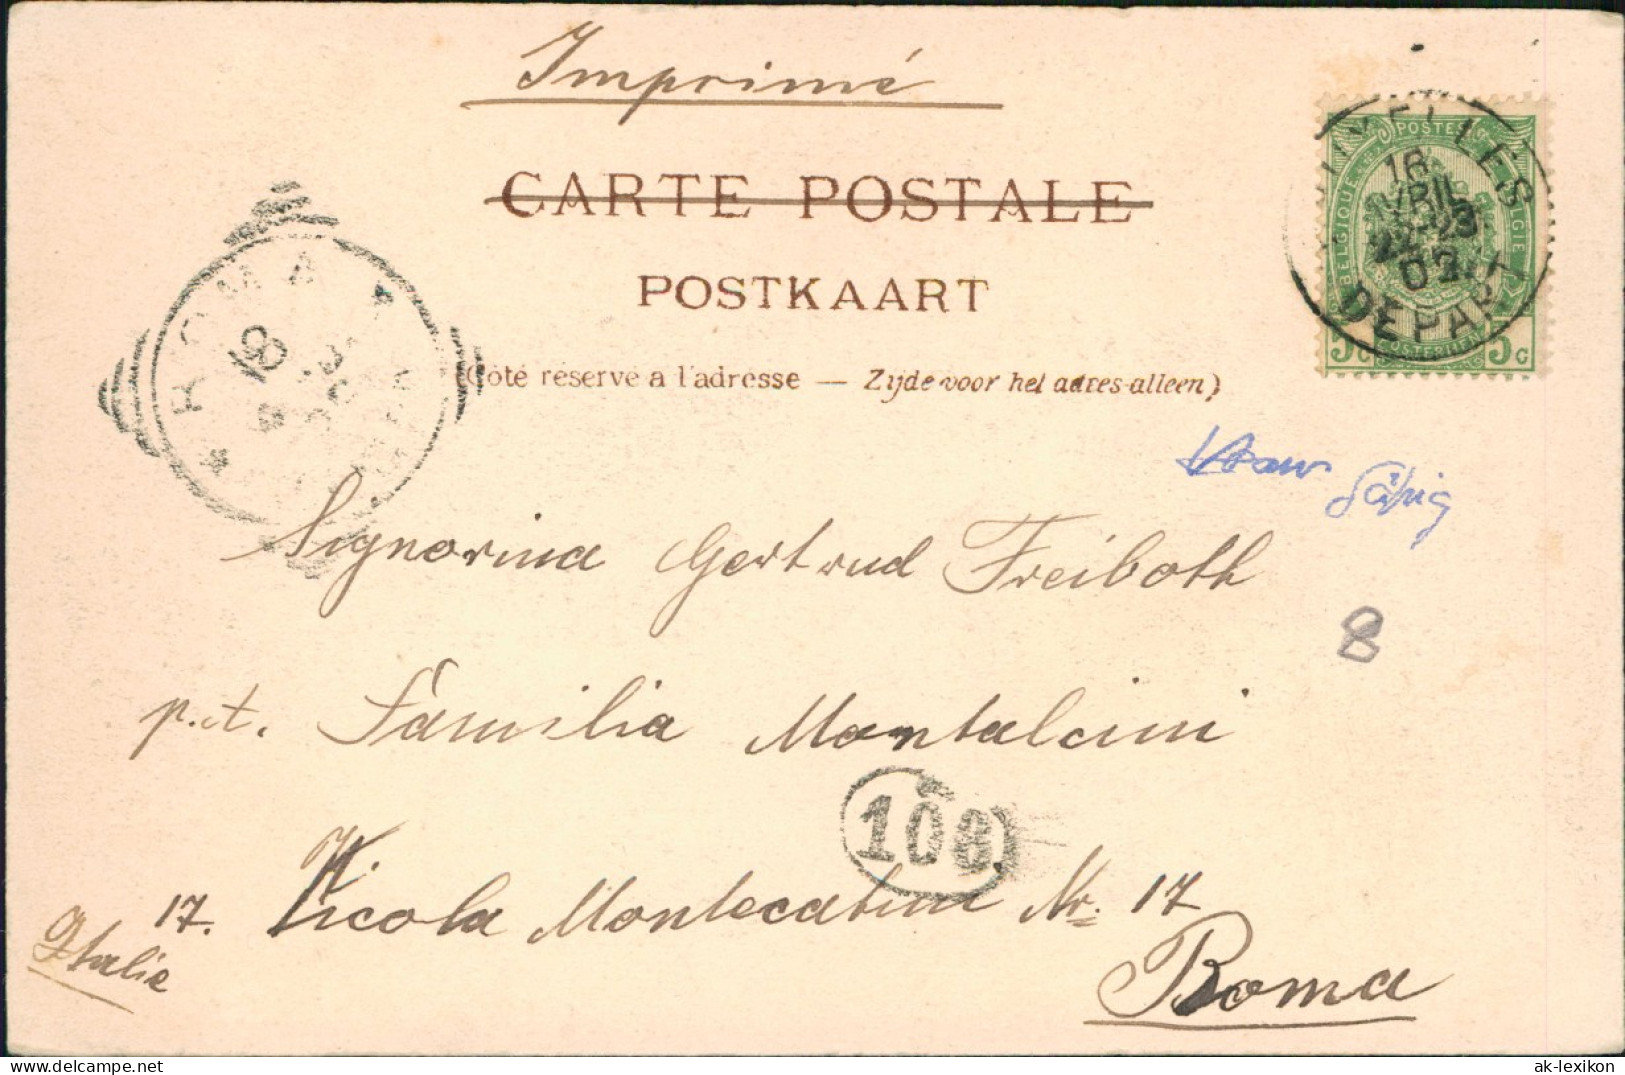 Imprimé
CARTE POSTALE
POSTKAART
(Côté réservé à l'adresse — Zijde voor het adres alleen)
BRUXELLES
18
AVRIL
22-23
02
DEPART
POSTES
BELGIQUE
BELGIE
POSTERIJEN
5 c 5 c
ROMA
Signorina Gertrud Freiboth
p. ad. Familia Montalcini
106
17. Vicola Montecatini Nr. 17
Italie
Roma
8
ak-lexikon